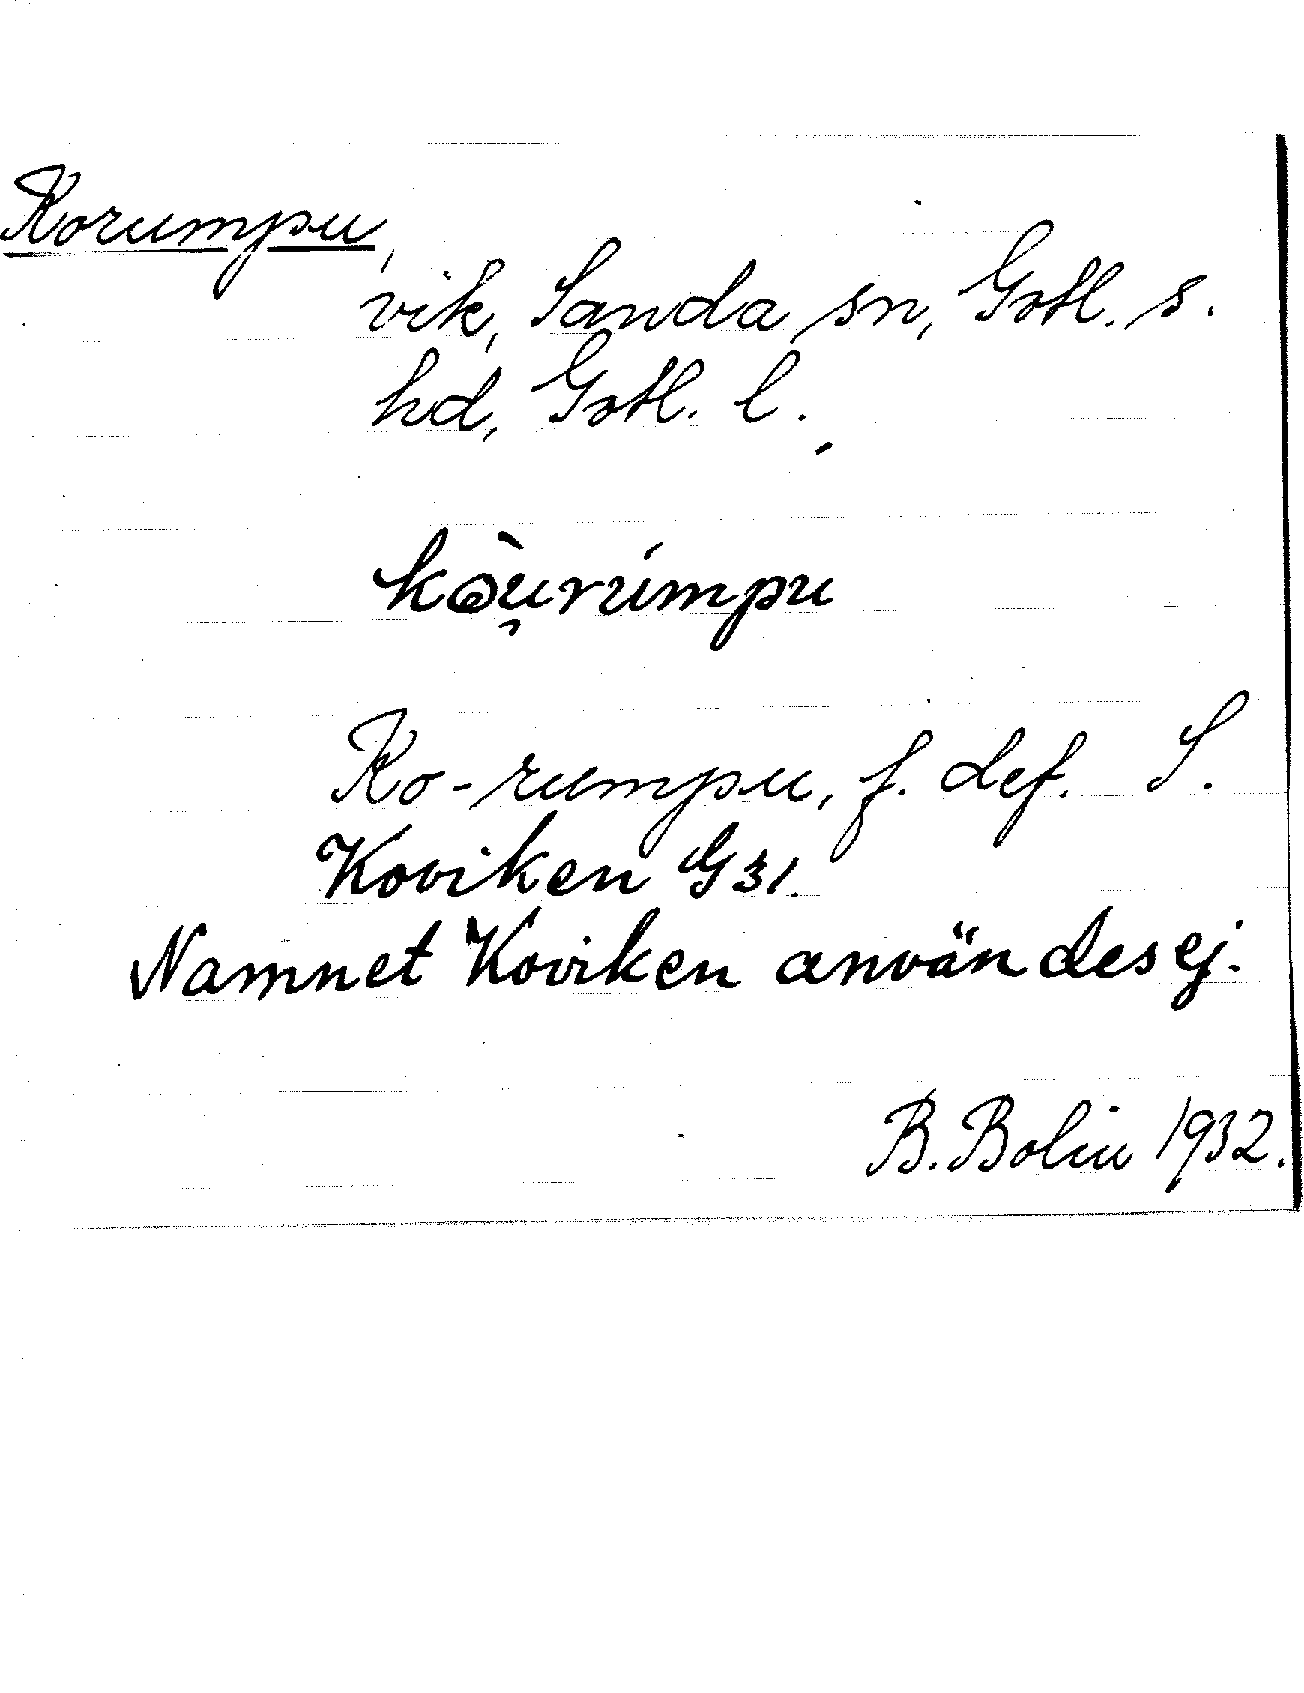 Korumpu,
vik, Sanda sn, Gotl. s.
hd, Gotl. l.
kòu̯rúmpu
Ko-rumpu, f. def. S.
Koviken G 31.
Namnet Koviken användes ej.
B. Bolin 1932.